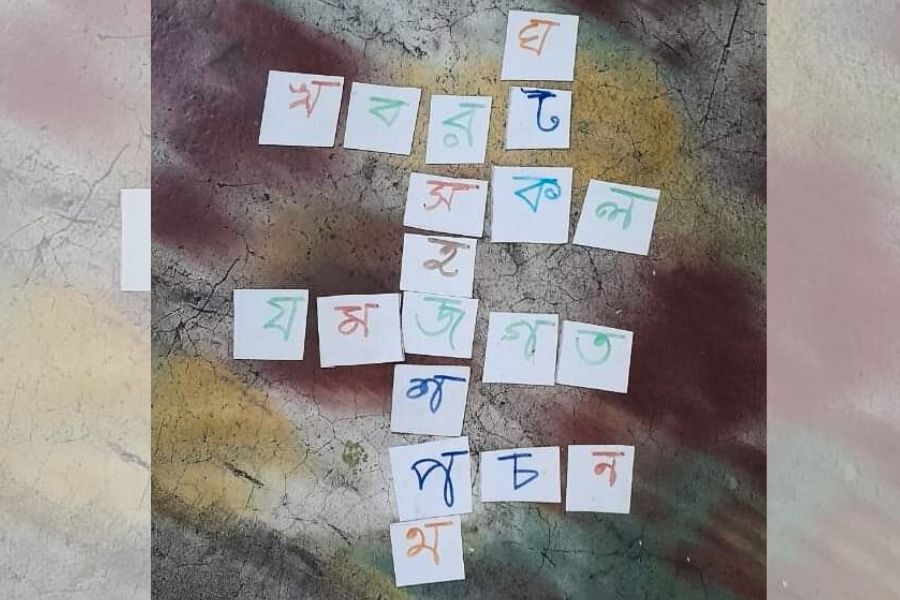 ঘ
খ ব র ট
স ক ল
হ
য ম জ গ ত
শ
প চ ন
থ